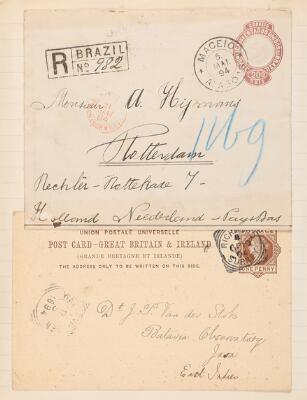 R BRAZIL
No. 982
MACEIO
5
MAI
94
200
Monsieur A. Hijmans
1169
Rotterdam
Rechter-Rottekade 7-
Holland Niederland - Pays Bas
UNION POSTALE UNIVERSELLE
POST CARD-GREAT BRITAIN & IRELAND
(GRANDE BRETAGNE ET IRLANDE)
THE ADDRESS ONLY TO BE WRITTEN ON THIS SIDE.
ONE PENNY
Dr. J. P. Van der Stok
Batavia Observatory
Java
East Indies